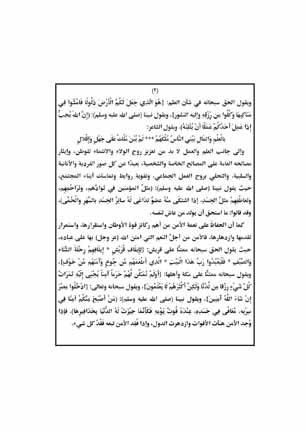 (٢)
ويقول الحق سبحانه في شأن العلم: {هُوَ الَّذِي جَعَلَ لَكُمُ الْأَرْضَ ذَلُولًا فَامْشُوا فِي
مَنَاكِبِهَا وَكُلُوا مِن رِّزْقِهِ وَإِلَيْهِ النُّشُورُ}، ويقول نبينا (صلى الله عليه وسلم): (إِنَّ اللهَ يُحِبُّ
إِذَا عَمِلَ أَحَدُكُمْ عَمَلًا أَنْ يُتْقِنَهُ)، ويقول الشاعر:
بالعِلْمِ والمَالِ يَبْنِي النَّاسُ مُلْكَهُمُ *** لَمْ يُبْنَ مُلْكٌ عَلَى جَهْلٍ وَإِقْلَالِ
وإلى جانب العلم والعمل لا بد من تعزيز روح الولاء والانتماء للوطن، وإيثار
مصالحه العامة على المصالح الخاصة والشخصية، بعيدًا عن كل صور الفردية والأنانية
والسلبية، والتحلي بروح العمل الجماعي، وتقوية روابط وتماسك أبناء المجتمع،
حيث يقول نبينا (صلى الله عليه وسلم): (مثلُ المؤمنين في تَوادِّهم، وتَراحُمِهم،
وتَعاطُفِهِمْ مثلُ الجسَدِ، إذا اشتكَى منْهُ عضوٌ تدَاعَى لَهُ سائِرُ الجسَدِ بالسَّهَرِ والْحُمَّى)،
وقد قالوا: ما استحق أن يولد من عاش لنفسه.
كما أن الحفاظ على نعمة الأمن من أهم ركائز قوة الأوطان واستقرارها، واستمرار
تقدمها وازدهارها، فالأمن من أجل النعم التي امتن الله (عز وجل) بها على عباده،
حيث يقول الحق سبحانه ممتنًا على قريش: {لِإِيلَافِ قُرَيْشٍ * إِيلَافِهِمْ رِحْلَةَ الشِّتَاءِ
وَالصَّيْفِ * فَلْيَعْبُدُوا رَبَّ هَذَا الْبَيْتِ * الَّذِي أَطْعَمَهُمْ مِّن جُوعٍ وَآمَنَهُم مِّنْ خَوْفٍ}،
ويقول سبحانه ممتنًا على مكة وأهلها: {أَوَلَمْ نُمَكِّن لَّهُمْ حَرَمًا آمِنًا يُجْبَى إِلَيْهِ ثَمَرَاتُ
كُلِّ شَيْءٍ رِّزْقًا مِن لَّدُنَّا وَلَكِنَّ أَكْثَرَهُمْ لَا يَعْلَمُونَ}، ويقول سبحانه وتعالى: {ادْخُلُوا مِصْرَ
إِن شَاءَ اللَّهُ آمِنِينَ}، ويقول نبينا (صلى الله عليه وسلم): (مَنْ أَصْبَحَ مِنْكُمْ آمِنًا فِي
سِرْبِهِ، مُعَافًى فِي جَسَدِهِ، عِنْدَهُ قُوتُ يَوْمِهِ فَكَأَنَّمَا حِيزَتْ لَهُ الدُّنْيَا بِحَذَافِيرِهَا)، فإذا
وُجد الأمن هنأت الأقوات وازدهرت الدول، وإذا فُقد الأمن تبعه فَقْدُ كل شيء.